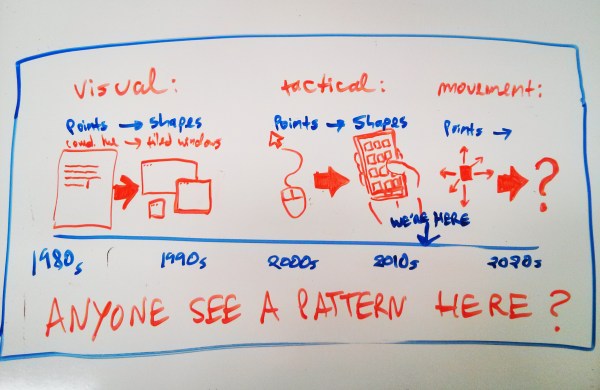 visual:
tactical:
movement:
Points → shapes
Points → Shapes
Points →
comd. line → tiled windows
?
WE'RE HERE
1980s
1990s
2000s
2010s
2020s
ANYONE SEE A PATTERN HERE?